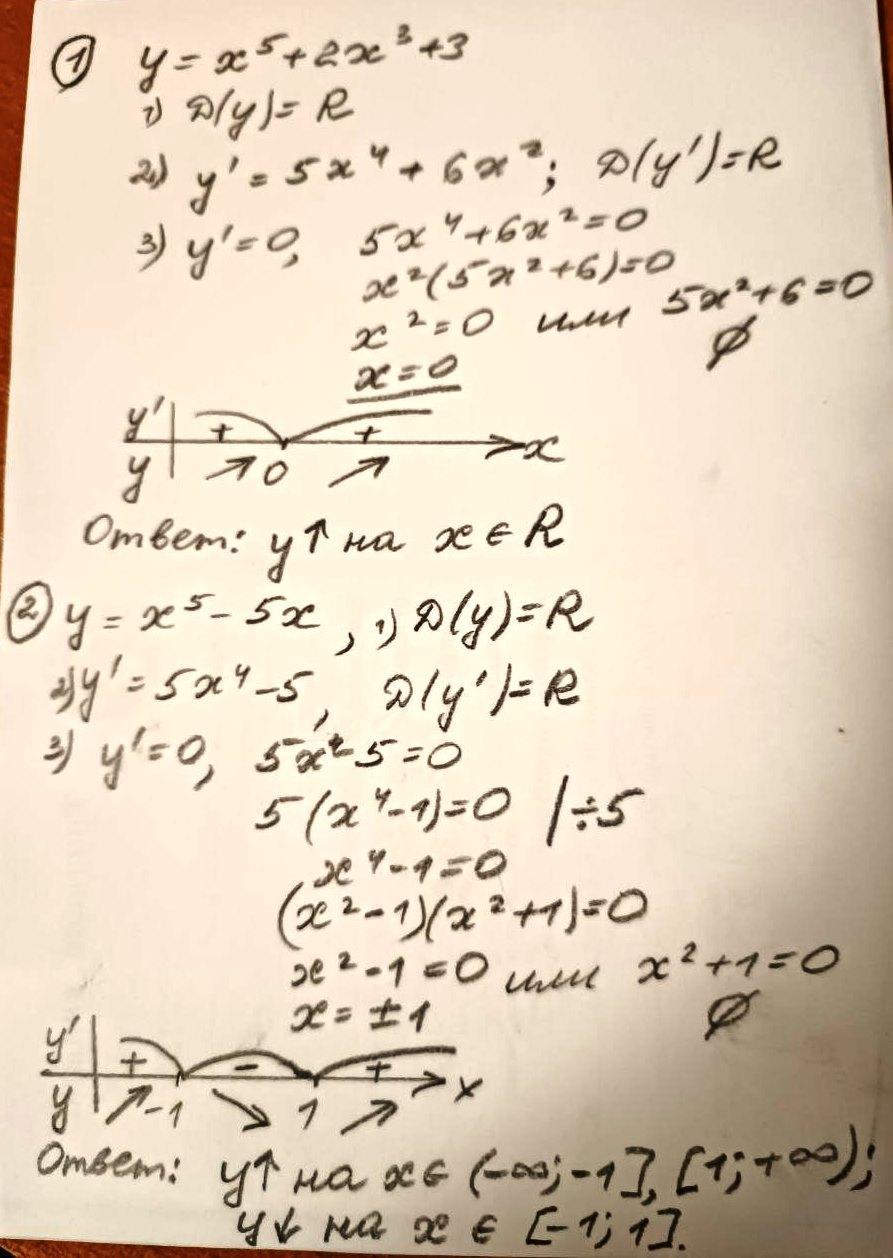 ① y = x⁵ + 2x³ + 3
1) D(y) = R
2) y' = 5x⁴ + 6x²; D(y') = R
3) y' = 0, 5x⁴ + 6x² = 0
x²(5x² + 6) = 0
x² = 0 или 5x² + 6 = 0
x = 0 ∅
y' + + x
y ↗ 0 ↗
Ответ: y↑ на x ∈ R
② y = x⁵ - 5x, 1) D(y) = R
2) y' = 5x⁴ - 5, D(y') = R
3) y' = 0, 5x⁴ - 5 = 0
5(x⁴ - 1) = 0 | ÷5
x⁴ - 1 = 0
(x² - 1)(x² + 1) = 0
x² - 1 = 0 или x² + 1 = 0
x = ± 1 ∅
y' + - + x
y ↗ -1 ↘ 1 ↗
Ответ: y↑ на x ∈ (-∞; -1], [1; +∞);
y↓ на x ∈ [-1; 1].